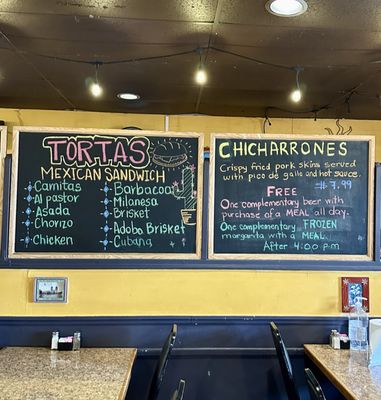 TORTAS
MEXICAN SANDWICH
Carnitas
Al pastor
Asada
Chorizo
Chicken
Barbacoa
Milanesa
Brisket
Adobo Brisket
Cubana
CHICHARRONES
Crispy fried pork skins served
with pico de gallo and hot sauce.
7.99
FREE
One complimentary beer with
purchase of a MEAL all day.
One complimentary FROZEN
margarita with a MEAL
After 4:00 pm